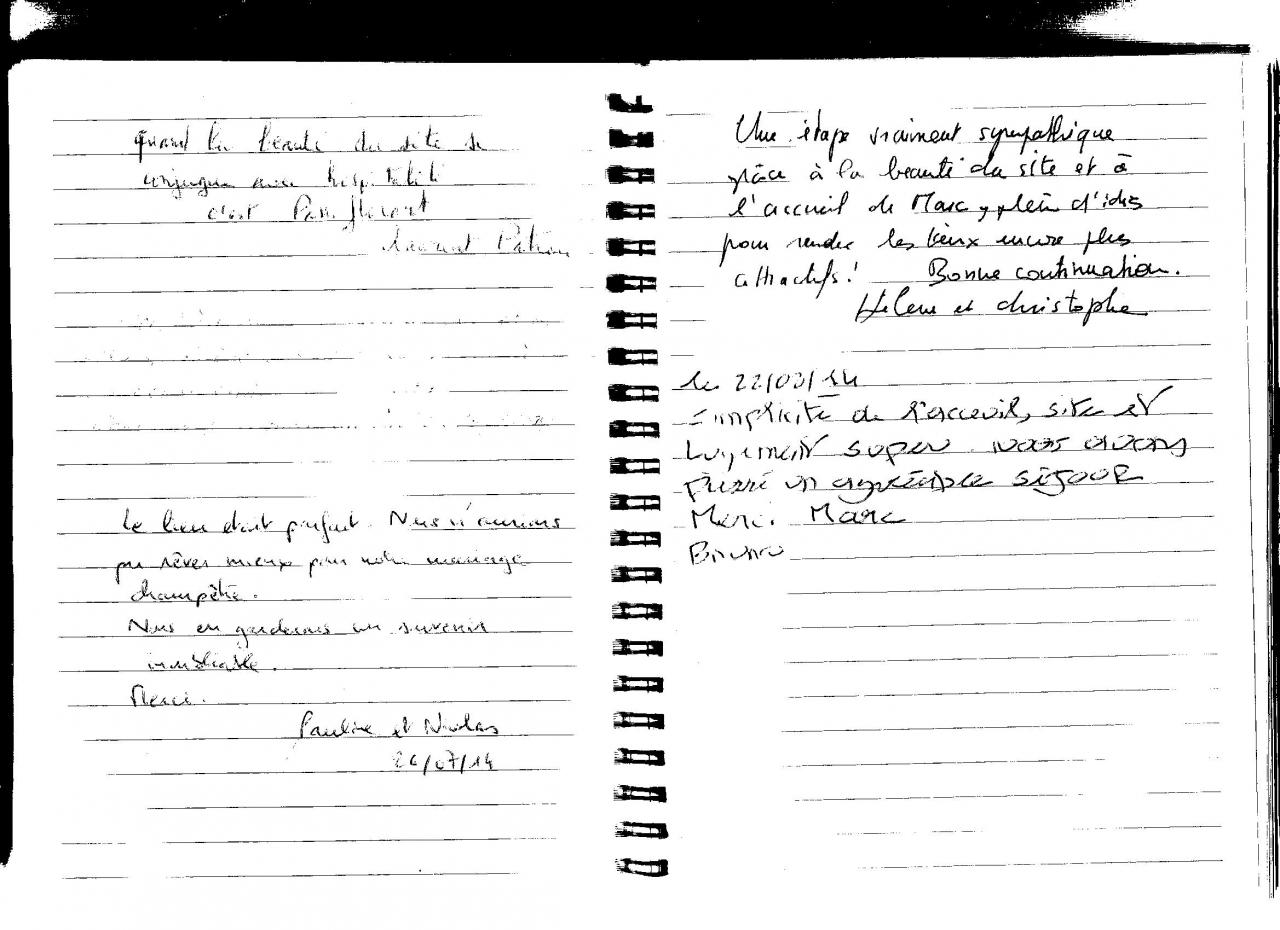 quand la beauté du site se
conjugue avec hospitalité
c'est
Laurent
Le lieu était parfait. Nous n'aurions
pu rêver mieux pour notre mariage
champêtre.
Nous en garderons un souvenir
inoubliable.
Merci.
Pauline et Nicolas
26/07/14
Une étape vraiment sympathique
grâce à la beauté du site et à
l'accueil de Marc, plein d'idées
pour rendre les lieux encore plus
attractifs! Bonne continuation.
Helene et christophe
le 22/03/14
Simplicité de l'acceuil, site et
Logement super. nous avons
Passé un agréable séjour
Merci Marc
Bruno